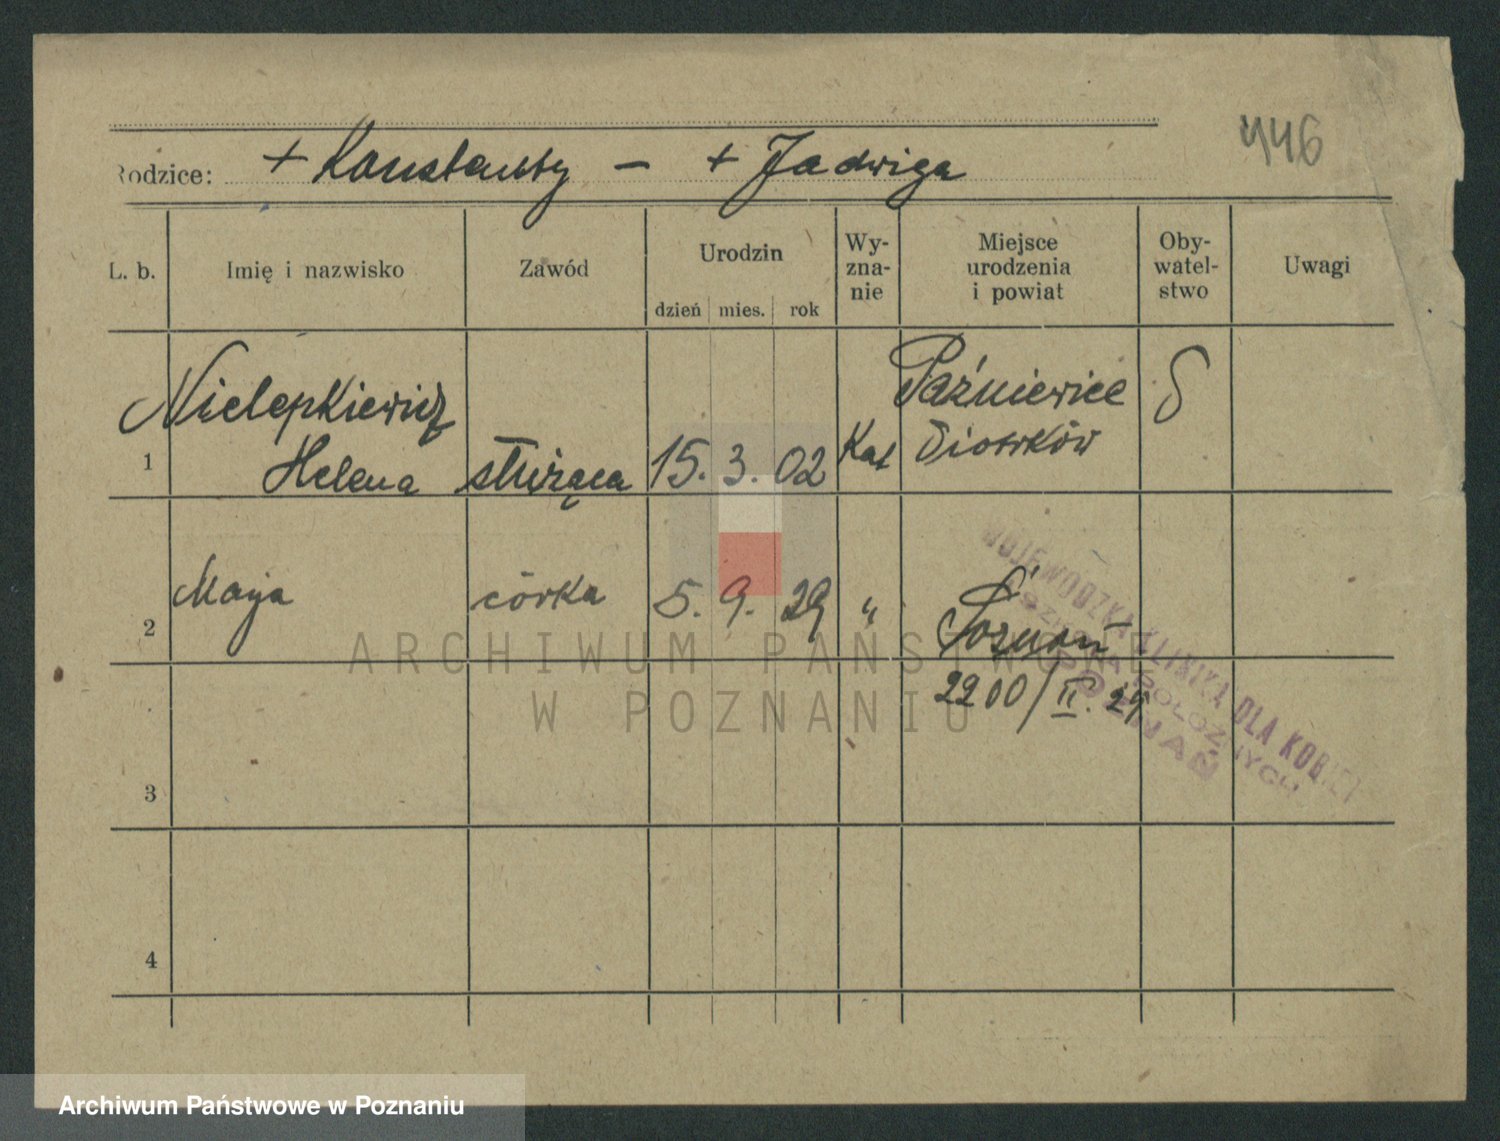 446
Rodzice: + Konstanty – + Jadwiga
L. b. Imię i nazwisko Zawód Urodzin dzień mies. rok Wy-zna-nie Miejsce urodzenia i powiat Oby-watel-stwo Uwagi
1 Nielepkiewicz Helena służąca 15. 3. 02 Kat Paźniewice Piotrków
2 Maria córka 5. 9. 29 " Poznań
2200/II. 29
WOJEWÓDZKA KLINIKA DLA KOBIET
POŁOŻNYCH
POZNAŃ
3
4
ARCHIWUM PAŃSTWOWE
W POZNANIU
Archiwum Państwowe w Poznaniu